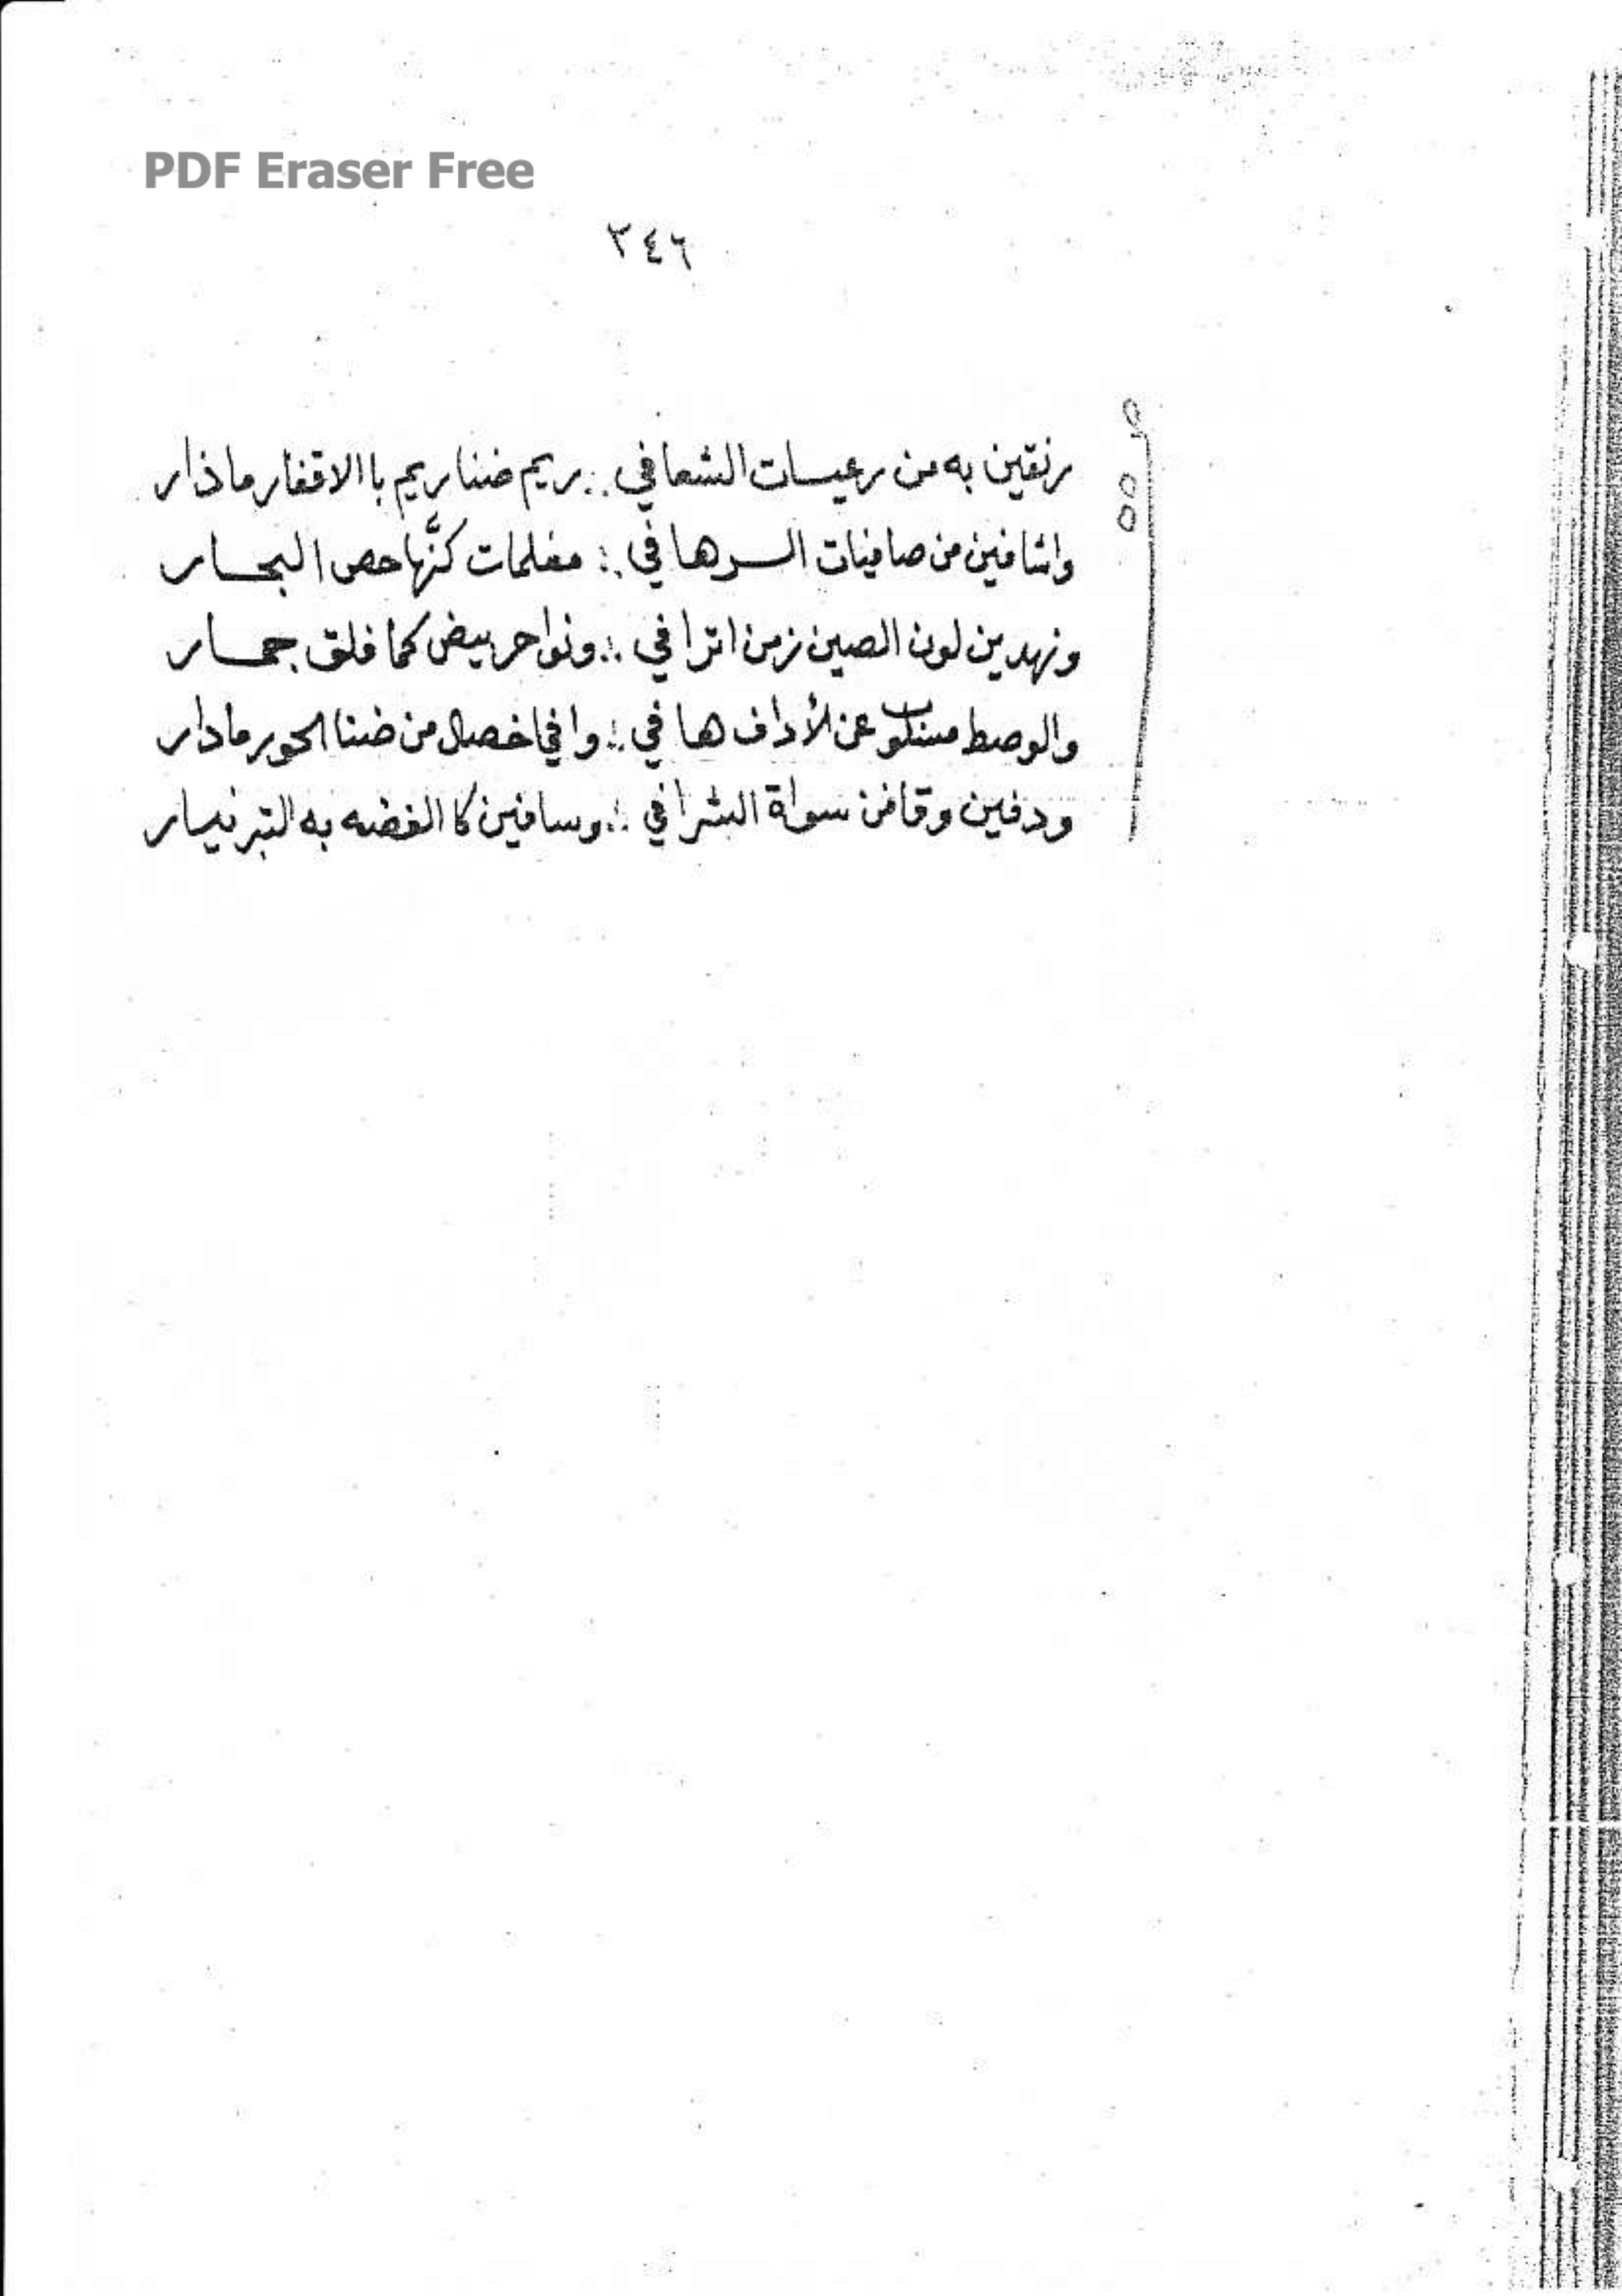 PDF Eraser Free
٢٤٦
رنقين به من رعيسات الشعافي ∴ ريم ضنا ريم با الاقفار ماذار
واشافين من صافيات الرهافي ∴ مفلجات كنَّها حص البحار
ونهدين لون الصين زمن اترافي ∴ ونواحر بيض كما فلق جمار
والوصط عن الأداف هافي ∴ وافي اخصال من ضنا الحور مادار
ودفين وقافن سواة الشرافي ∴ وسافين كا الفضه به التبر نيسار